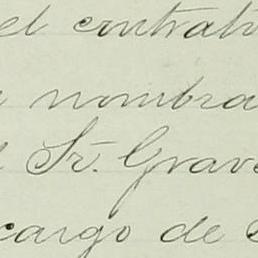 el contrato
nombra
Sr. Grave
cargo de